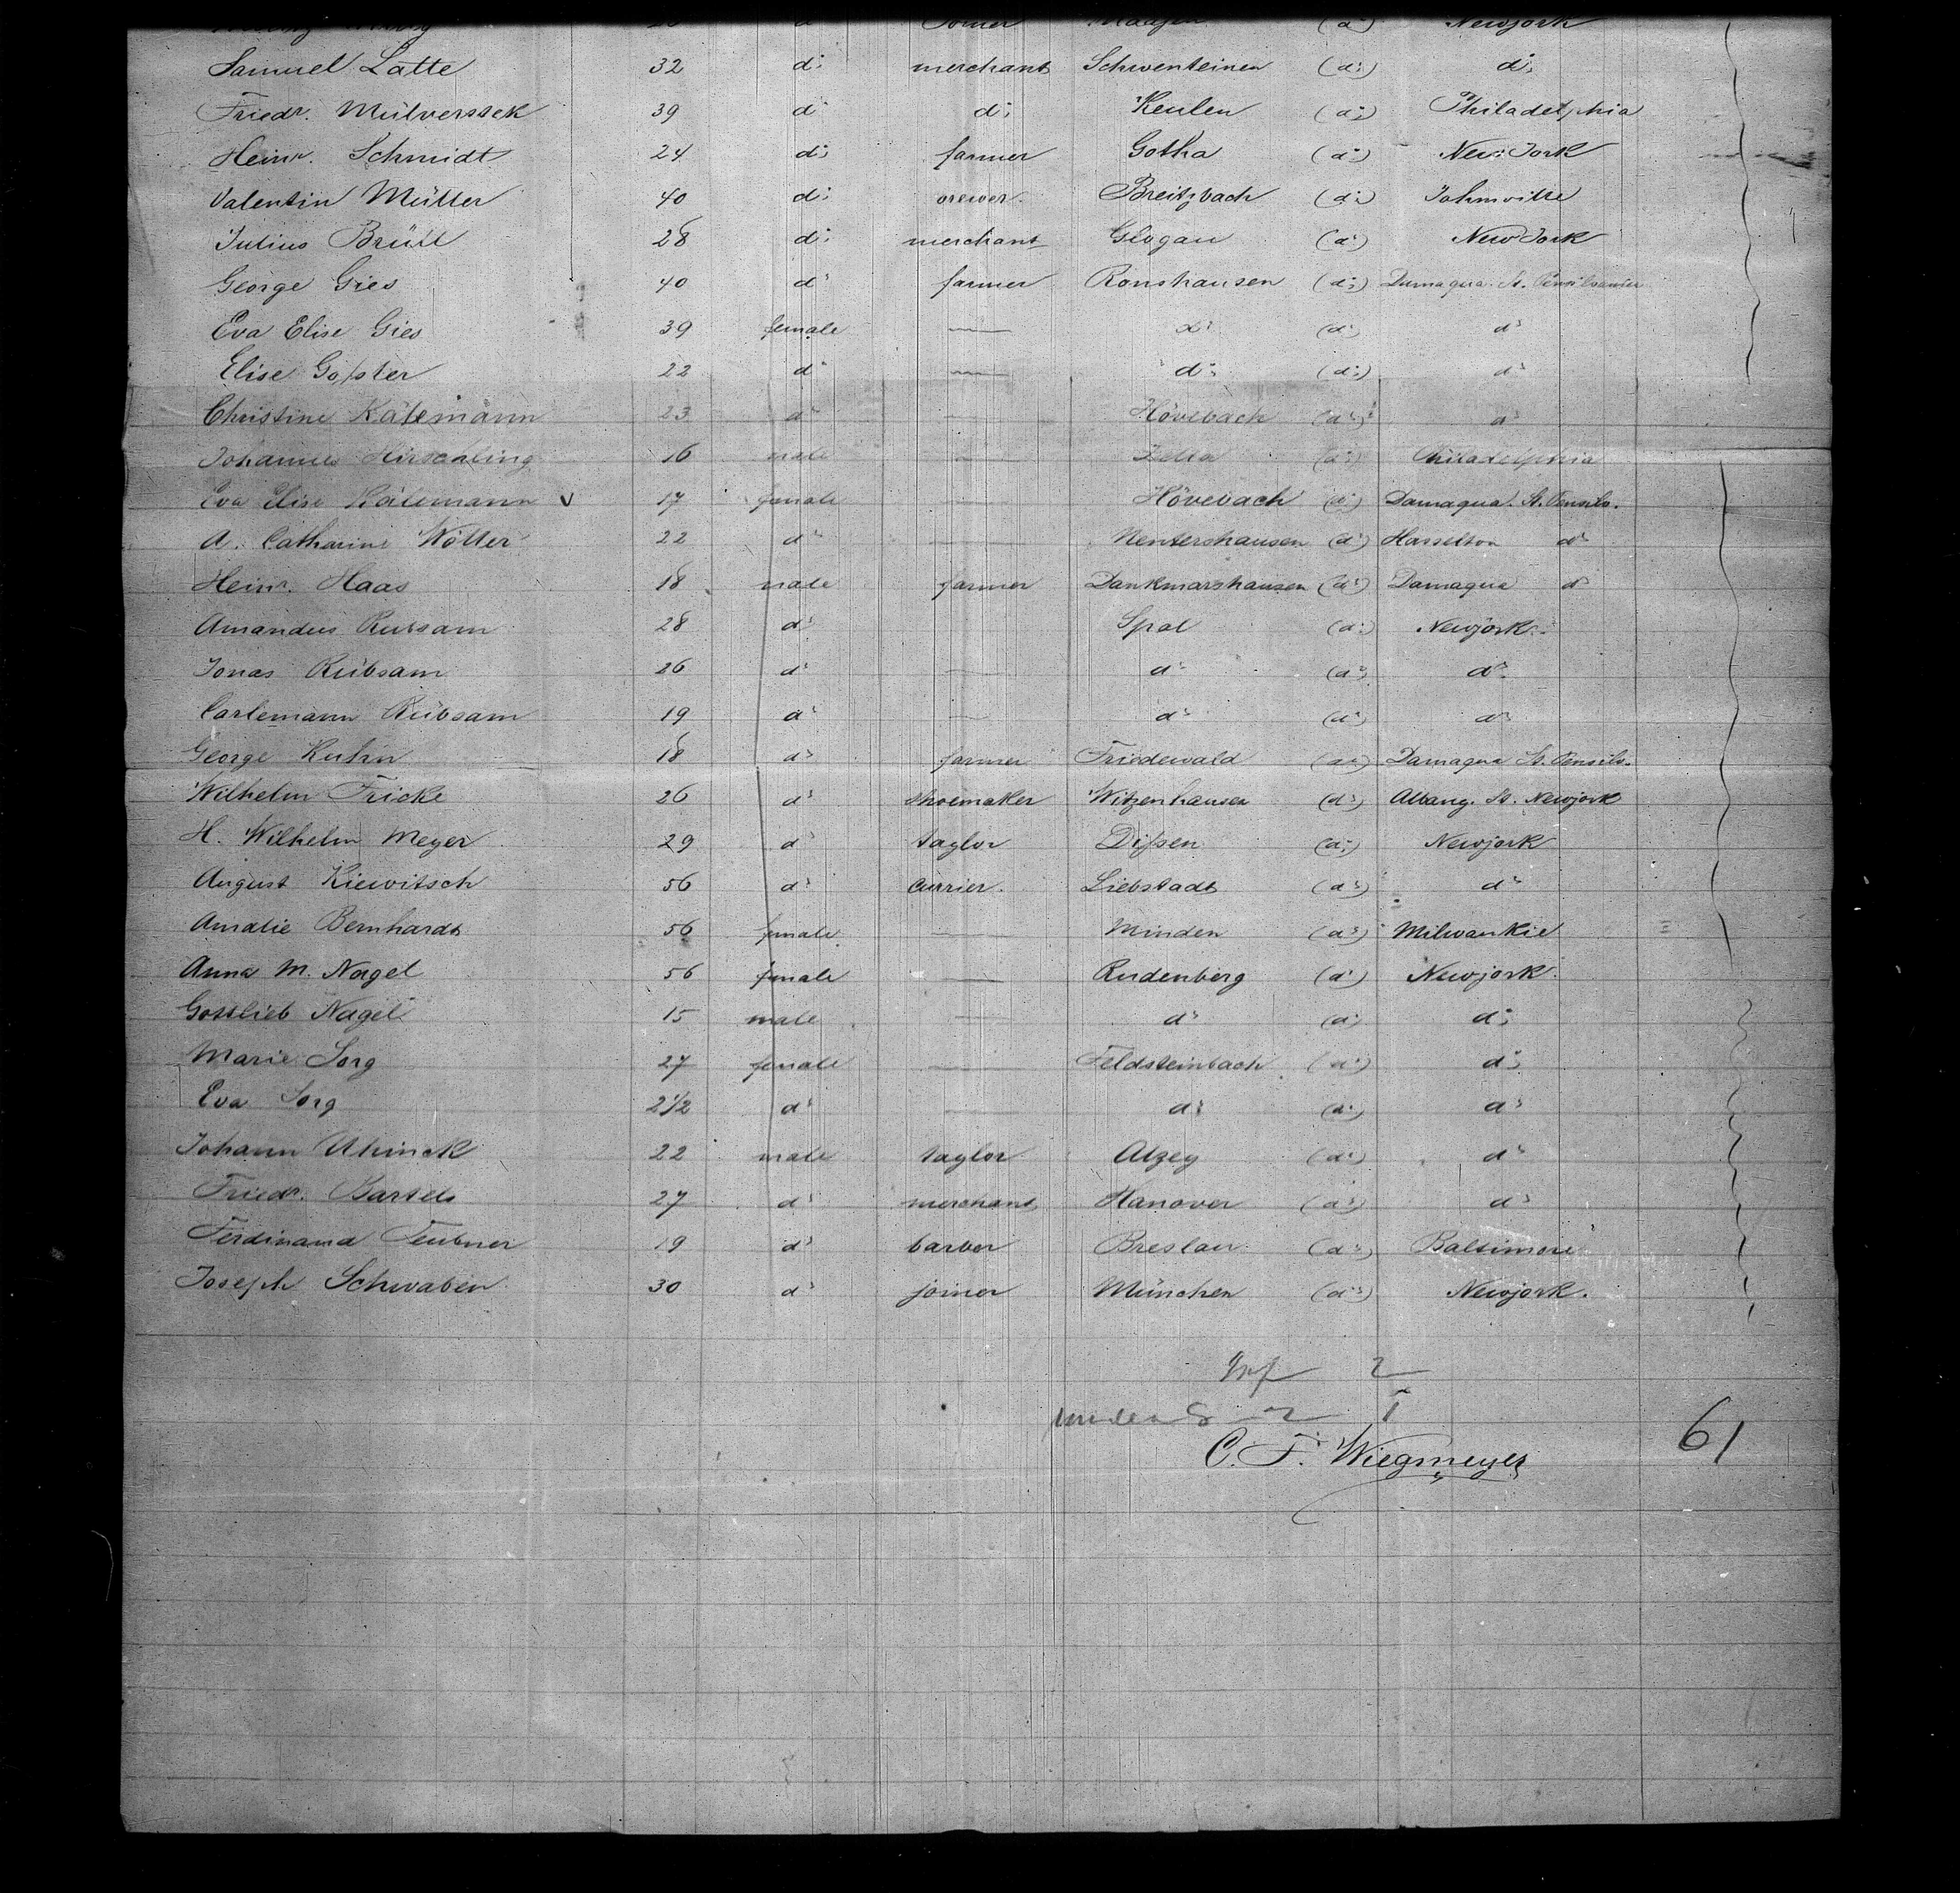 Newjork
Samuel Latte 32 d: merchant Schwenteinen (d:) d:
Friedr. Mülverstek 39 d: d: Keulen (d:) Philadelphia
Heinr. Schmidt 24 d: farmer Gotha (d:) New Jork
Valentin Müller 40 d: brewer. Breitzbach (d:) Johnville
Julius Brüll 28 d: merchant Glogau (d:) New Jork
George Gies 40 d: farmer Ronshausen (d:) Damaqua. St. Pensilvanien
Eva Elise Gies 39 female — d: (d:) d:
Elise Goßler 22 d: — d: (d:) d:
Christine Kälemann 23 d: — Hövebach (d:) d:
Johannes 16 male — Zella (d:) Philadelphia
Eva Elise Kälemann v 17 female — Hövebach (d:) Damaqua. St. Pensilv.
A. Catharine Wöller 22 d: — Nentershausen (d:) Hasselton d:
Heinr. Haas 18 male farmer Dankmarshausen (d:) Damaqua d:
Amandus Rübsam 28 d: — Spal (d:) Newjork.
Jonas Rübsam 26 d: — d: (d:) d:
Carlemann Rübsam 19 d: — d: (d:) d:
George Kuhn 18 d: farmer Friedewald (d:) Damaqua St. Pensilv.
Wilhelm Fricke 26 d: shoemaker Witzenhausen (d:) Albany. St. Newjork
H. Wilhelm Meyer 29 d: taylor Dißen (d:) Newjork
August Kiewitsch 56 d: currier. Liebstadt (d:) d:
Amalie Bernhardt 56 female — Minden (d:) Milwaukie
Anna M. Nagel 56 female — Rudenberg (d:) Newjork.
Gottlieb Nagel 15 male — d: (d:) d:
Marie Sorg 27 female — Feldsteinbach (d:) d:
Eva Sorg 2 1/2 d: — d: (d:) d:
Johann Uhinck 22 male taylor Alzey (d:) d:
Friedr. Bartels 27 d: merchant Hanover (d:) d:
Ferdinand Teubner 19 d: barber Breslau (d:) Baltimore
Joseph Schwaben 30 d: joiner München (d:) Newjork.
Inf 2
under 8 2 1
C. F. Wiegmeyer
61